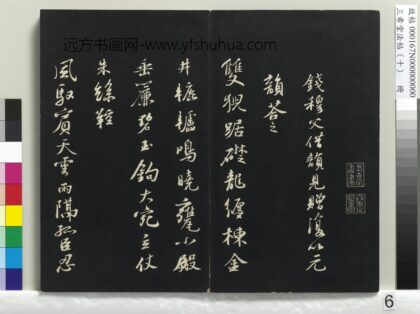 远方书画网-www.yfshuhua.com
錢穆父借韻見贈復以元
韻荅之
雙猊踞礎龍纏棟金
井轆轤鳴曉甕小殿
垂簾碧玉鈎大宛立仗
朱絲鞚
風馭賓天雲雨隔孤臣忍
故帖 000167N000000000
三希堂法帖（十） 冊
6